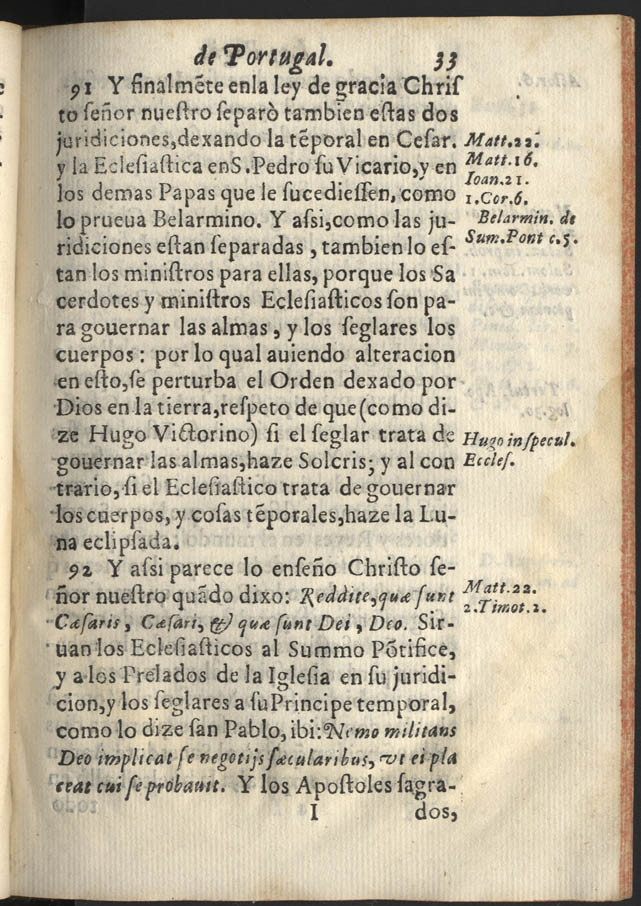 de Portugal. 33
91 Y finalmẽte enla ley de gracia Chriſ
to ſeñor nueſtro ſeparò tambien eſtas dos
juridiciones, dexando la tẽporal en Ceſar.
y la Ecleſiaſtica en S. Pedro ſu Vicario, y en
los demas Papas que le ſucedieſſen, como
lo prueua Belarmino. Y aſsi, como las ju-
ridiciones eſtan ſeparadas, tambien lo eſ-
tan los miniſtros para ellas, porque los Sa
cerdotes y miniſtros Ecleſiaſticos ſon pa-
ra gouernar las almas, y los ſeglares los
cuerpos: por lo qual auiendo alteracion
en eſto, ſe perturba el Orden dexado por
Dios en la tierra, reſpeto de que (como di-
ze Hugo Victorino) ſi el ſeglar trata de
gouernar las almas, haze Solcris; y al con
trario, ſi el Ecleſiaſtico trata de gouernar
los cuerpos, y coſas tẽporales, haze la Lu-
na eclipſada.
92 Y aſsi parece lo enſeño Chriſto ſe-
ñor nueſtro quãdo dixo: Reddite, quæ ſunt
Cæſaris, Cæſari, & quæ ſunt Dei, Deo. Sir-
uan los Ecleſiaſticos al Summo Põtifice,
y a los Prelados de la Igleſia en ſu juridi-
cion, y los ſeglares a ſu Principe temporal,
como lo dize ſan Pablo, ibi: Nemo militans
Deo implicat ſe negotijs ſæcularibus, vt ei pla
ceat cui ſe probauit. Y los Apoſtoles ſagra-
I dos,
Matt.22.
Matt.16.
Ioan.21.
1.Cor.6.
Belarmin. de
Sum.Pont c.5.
Hugo in ſpecul.
Eccleſ.
Matt.22.
2.Timot.2.